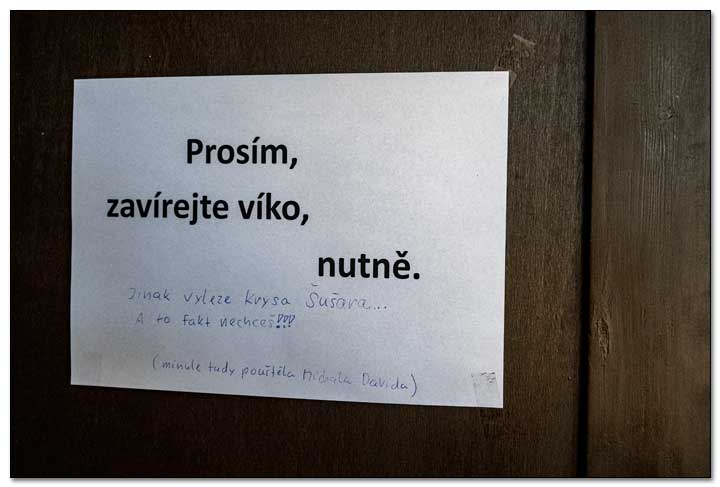 Prosím,
zavírejte víko,
nutně.
Jinak vyleze Krysa Šušara...
A to fakt nechceš!!!
(minule tudy pouštěla Michala Davida)